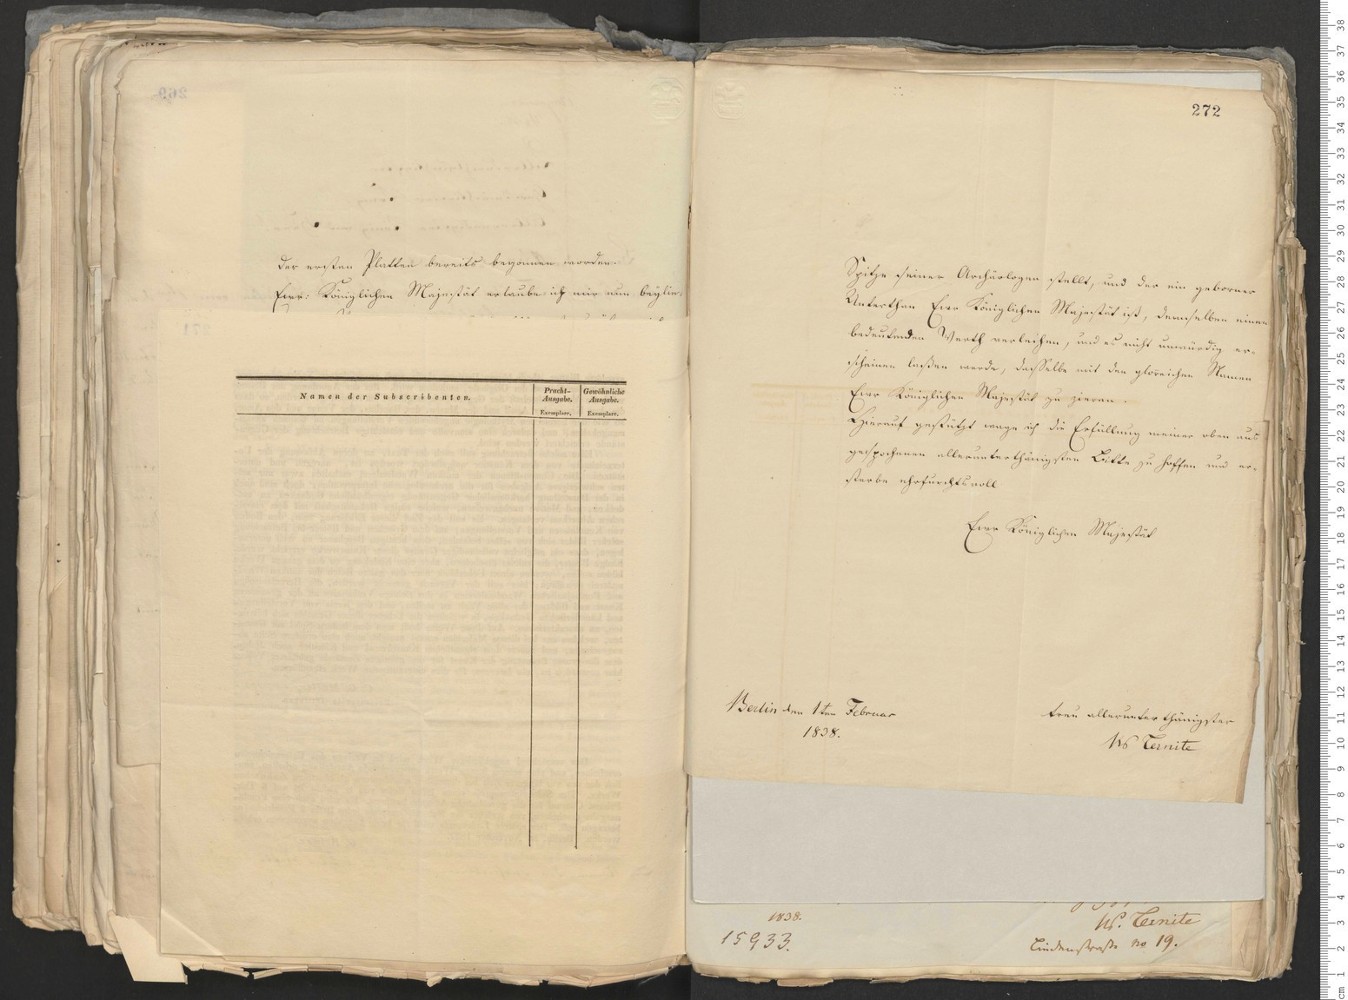 der ersten Platten bereits begonnen worden.
Eurer Königlichen Majestät erlaube ich mir nun beylie-
Namen der Subscribenten.
Pracht-
Ausgabe.
Exemplare.
Gewöhnliche
Ausgabe.
Exemplare.
272
Spitze seiner Archäologen stellt, und der ein geborner
Unterthan Eurer Königlichen Majestät ist, demselben einen
bedeutenden Werth verleihen, und es nicht unwürdig er-
scheinen laßen werde, dasselbe mit den glorreichen Namen
Eurer Königlichen Majestät zu zieren.
Hierauf gestützt wage ich die Erfüllung meiner oben aus
gesprochenen allerunterthänigsten Bitte zu hoffen und er-
sterbe ehrfurchtsvoll
Eurer Königlichen Majestät
Berlin den 1ten Februar
1838.
treu allerunterthänigster
W Ternite
1838.
15933.
W. Ternite
Lindenstraße no 19.